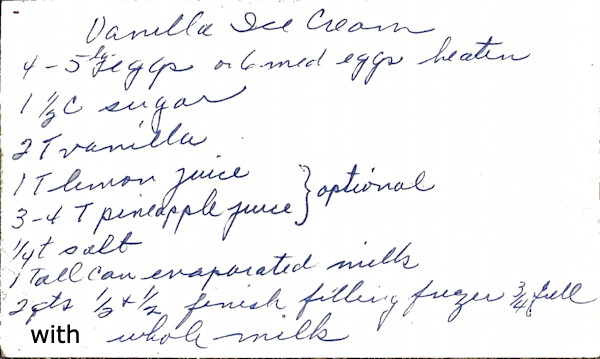 Vanilla Ice Cream
4-5 lg eggs or 6 med eggs beaten
1 1/2 C sugar
2 T vanilla
1 T lemon juice } optional
3-4 T pineapple juice
1/4 t salt
1 Tall can evaporated milk
2 qts 1/2 + 1/2 finish filling frezer 3/4 full
with whole milk